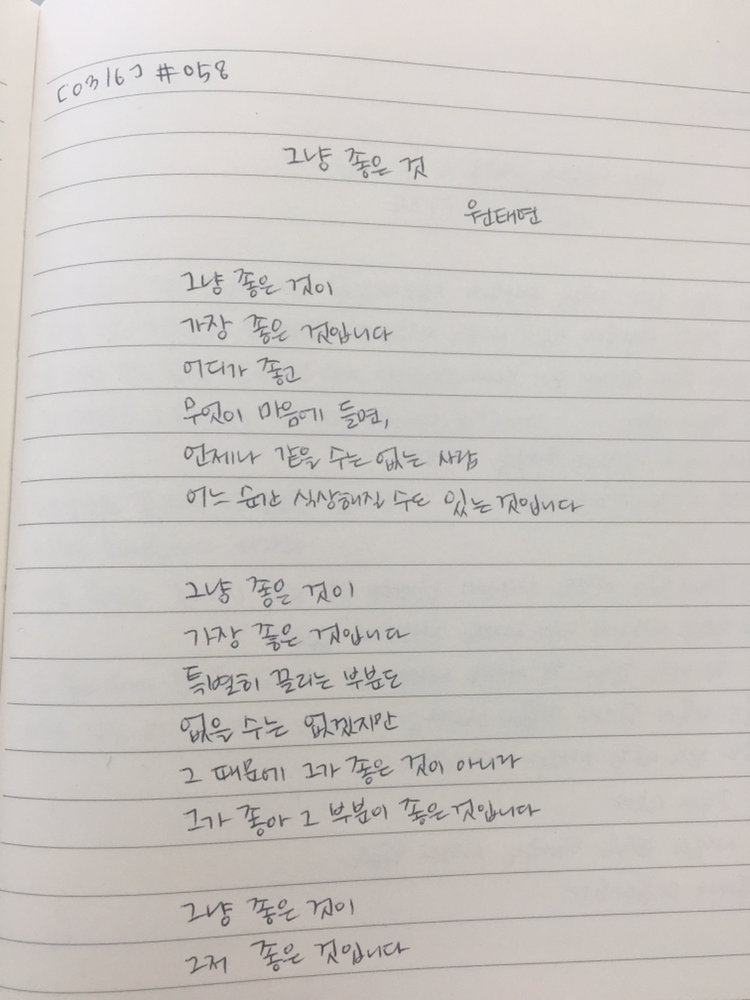 [0316] #058
그냥 좋은 것
원태연
그냥 좋은 것이
가장 좋은 것입니다
어디가 좋고
무엇이 마음에 들면,
언제나 같을 수는 없는 사람
어느 순간 식상해질 수도 있는 것입니다
그냥 좋은 것이
가장 좋은 것입니다
특별히 끌리는 부분도
없을 수는 없겠지만
그 때문에 그가 좋은 것이 아니라
그가 좋아 그 부분이 좋은 것입니다
그냥 좋은 것이
그저 좋은 것입니다